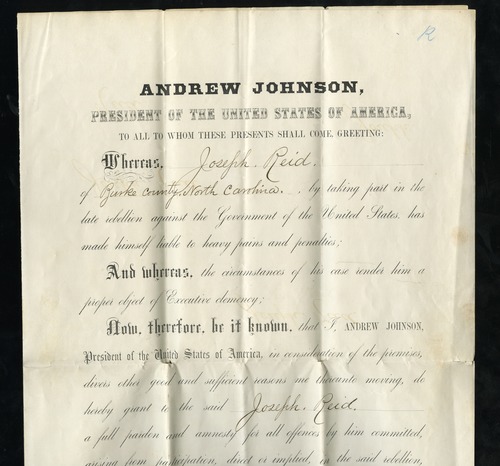 R
ANDREW JOHNSON,
PRESIDENT OF THE UNITED STATES OF AMERICA,
TO ALL TO WHOM THESE PRESENTS SHALL COME, GREETING:
Whereas, Joseph. Reid.
of Burke County, North Carolina. , by taking part in the
late rebellion against the Government of the United States, has
made himself liable to heavy pains and penalties;
And whereas, the circumstances of his case render him a
proper object of Executive clemency;
Now, therefore, be it known, that I, ANDREW JOHNSON,
President of the United States of America, in consideration of the premises,
divers other good and sufficient reasons me thereunto moving, do
hereby grant to the said Joseph. Reid.
a full pardon and amnesty for all offences by him committed,
arising from participation, direct or implied, in the said rebellion,